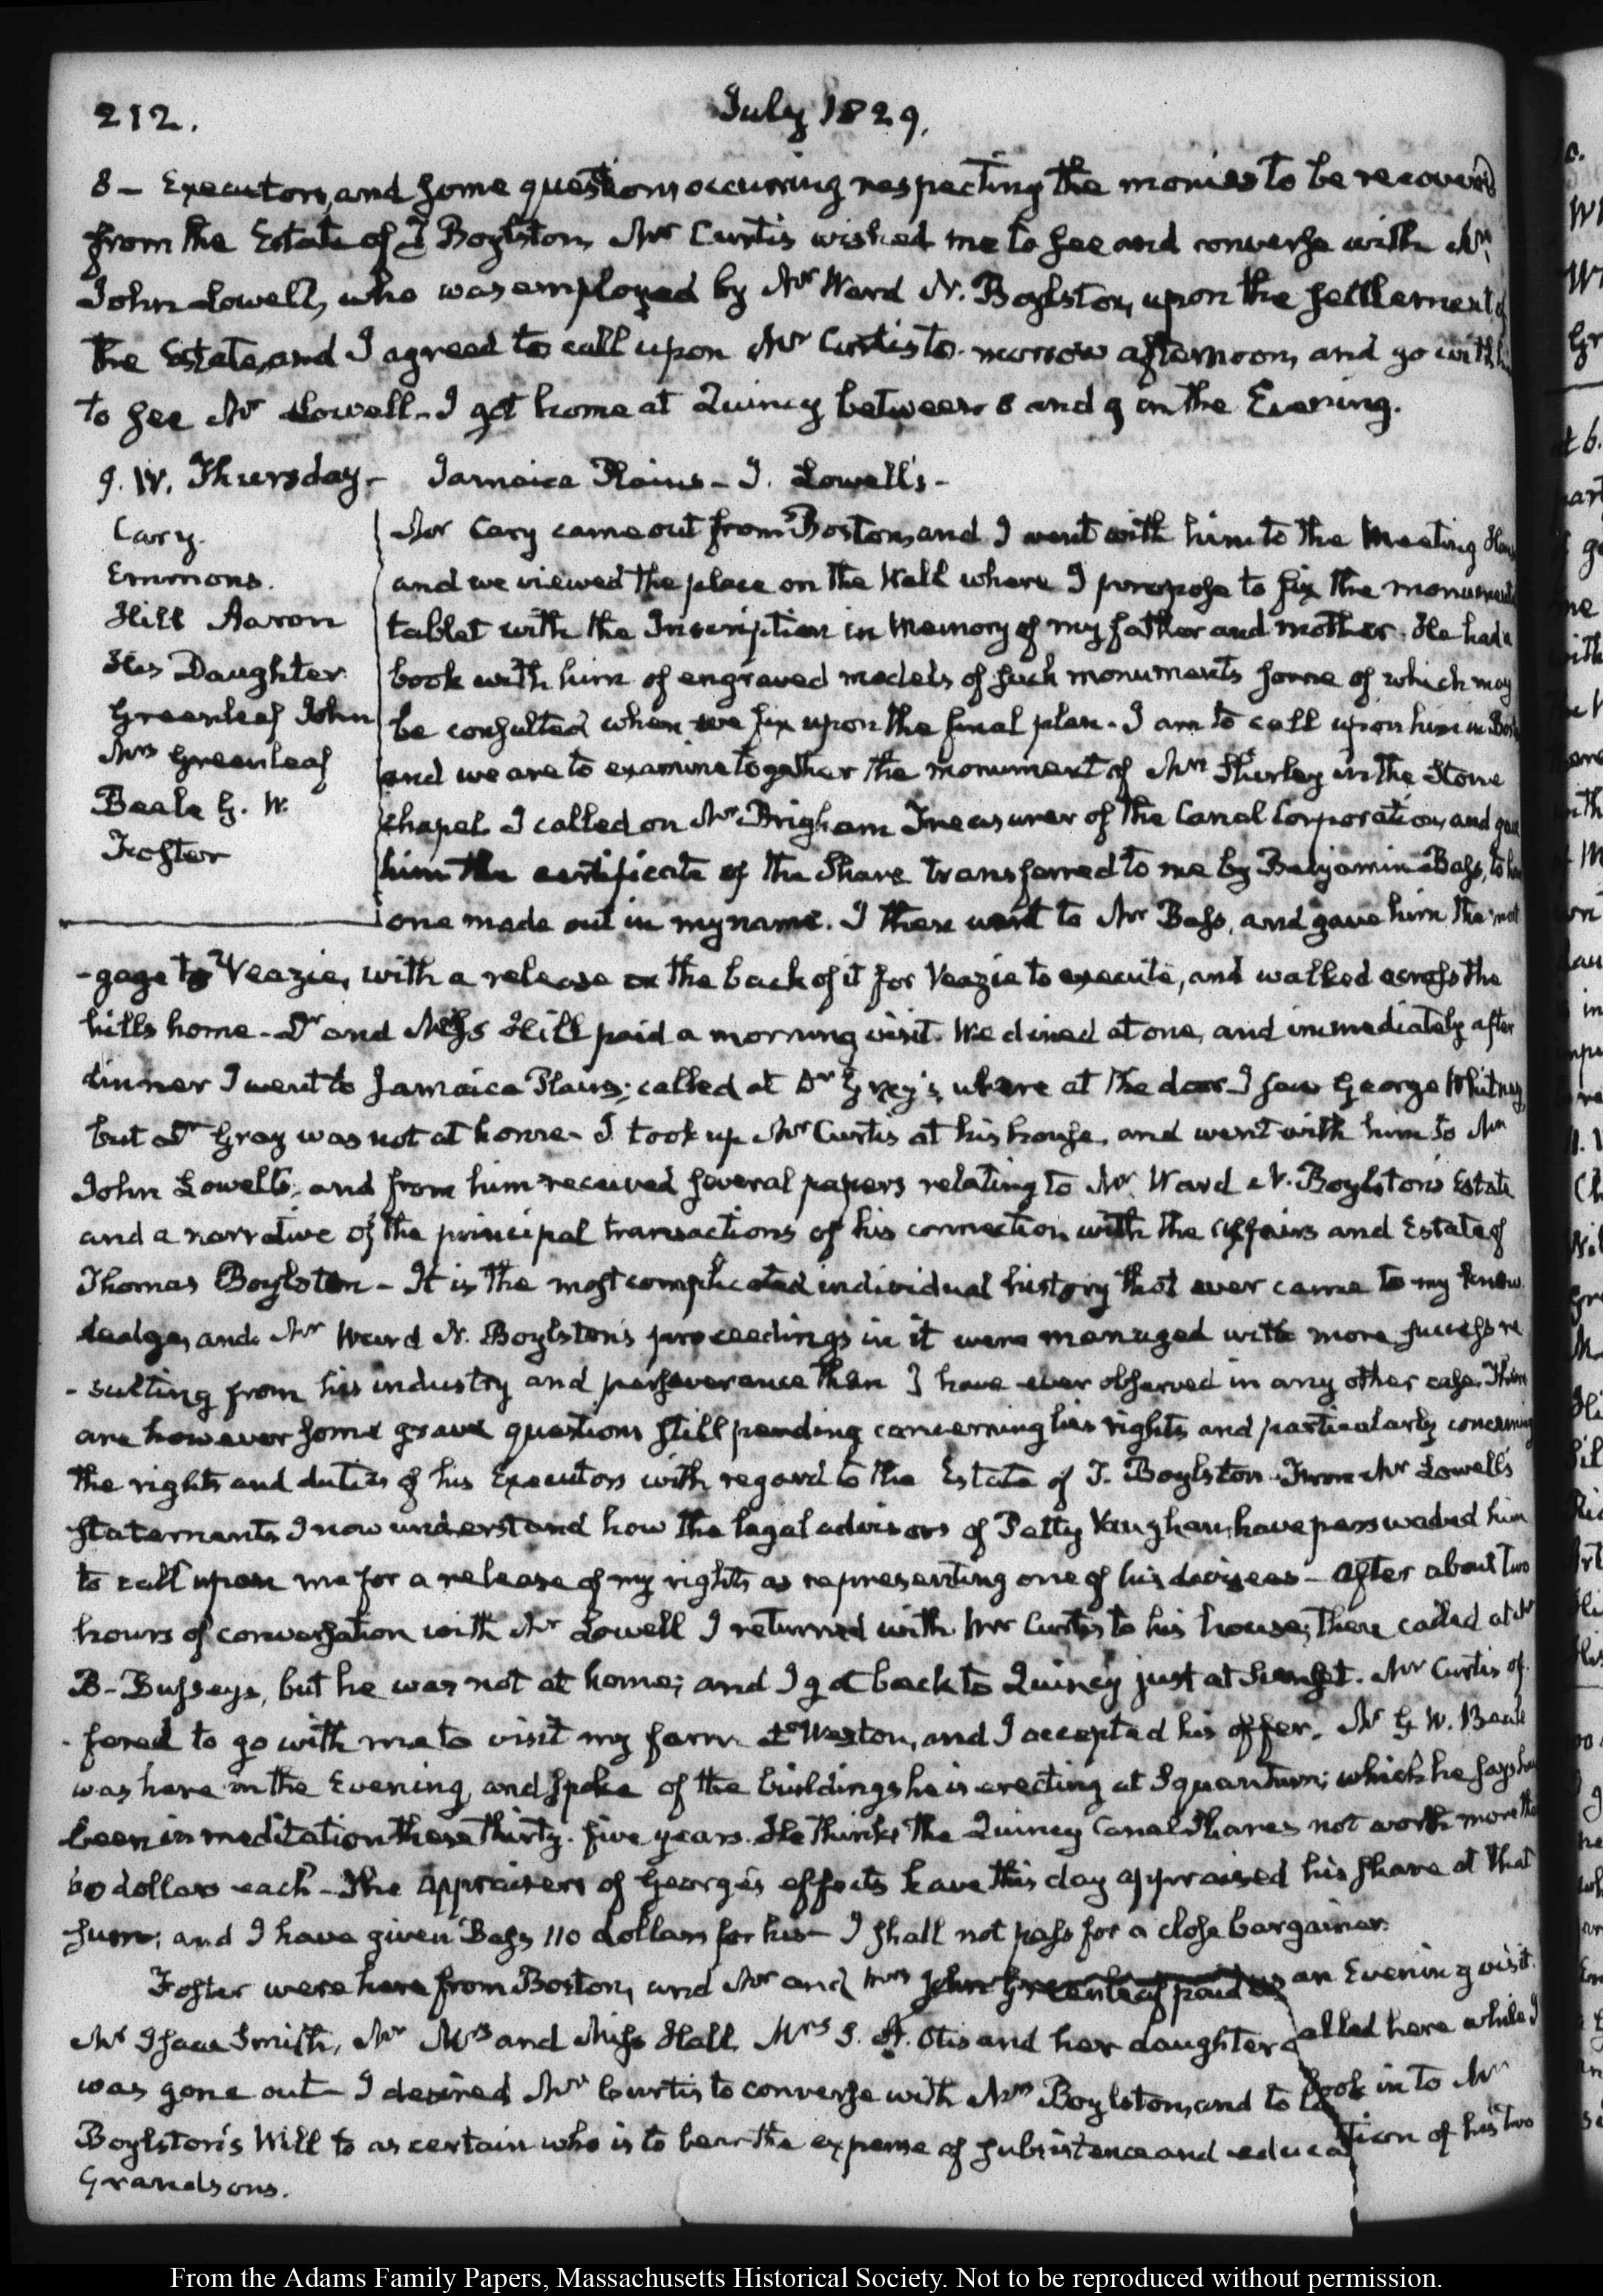 212.
July 1829.
8 — Executors, and some questions occurring respecting the monies to be recovered
from the Estate of T Boylston, Mr Curtis wished me to see and converse with Mr
John Lowell, who was employed by Mr Ward N. Boylston, upon the settlement of
the Estate, and I agreed to call upon Mr Curtis to-morrow afternoon, and go with
to see Mr Lowell — I got home at Quincy between 8 and 9 in the Evening.
9. IV. Thursday — Jamaica Plains — J. Lowell's —
Cary.
Emmons.
Hill Aaron
His Daughter
Greenleaf John
Mrs Greenleaf
Beale G. W.
Foster
Mr Cary came out from Boston, and I went with him to the Meeting House
and we viewed the place on the Wall where I propose to fix the monumental
tablet with the Inscription in Memory of my father and mother. He had a
book with him of engraved models of such monuments some of which may
be consulted when we fix upon the final plan — I am to call upon him in Boston
and we are to examine together the monument of Mrs Shirley in the Stone
chapel. I called on Mr Brigham Treasurer of the Canal Corporation, and gave
him the certificate of the Share transferred to me by Benjamin Bass, to have
one made out in my name. I then went to Mr Bass, and gave him the mort
-gage to Veazie, with a release on the back of it for Veazie to execute, and walked across the
hills home — Dr and Miss Hill paid a morning visit. We dined at one, and immediately after
dinner I went to Jamaica Plains; called at Dr Gray's, where at the door I saw George Whitney,
but Dr Gray was not at home — I took up Mr Curtis at his house, and went with him to Mr
John Lowell's; and from him received several papers relating to Mr Ward N. Boylston's Estate
and a narrative of the principal transactions of his connection with the affairs and Estate of
Thomas Boylston — It is the most complicated individual history that ever came to my know
ledge, and Mr Ward N. Boylston's proceedings in it were managed with more success re
-sulting from his industry and perseverance than I have ever observed in any other case. There
are however some grave questions still pending concerning his rights and particularly concerning
the rights and duties of his Executors with regard to the Estate of T. Boylston. From Mr Lowell's
statements I now understand how the legal advisors of Petty Vaughan, have perswaded him
to call upon me for a release of my rights as representing one of his devisees — After about two
hours of conversation with Mr Lowell I returned with Mr Curtis to his house; then called at Mr
B- Bussey's, but he was not at home; and I got back to Quincy just at Sunset. Mr Curtis of
-fered to go with me to visit my farm at Weston, and I accepted his offer. Mr G W. Beale
was here in the Evening, and spoke of the buildings he is erecting at Squantum; which he says has
been in meditation these thirty-five years. He thinks the Quincy Canal Shares not worth more than
60 dollars each — The Appraisers of George's effects have this day appraised his share at that
sum; and I have given Bass 110 dollars for his — I shall not pass for a close bargainer.
Foster were here from Boston, and Mr and Mrs John Greenleaf paid us an Evening visit.
Mr Isaac Smith, Mr Mrs and Miss Hall, Mrs S. A. Otis and her daughter called here while I
was gone out — I desired Mr Curtis to converse with Mrs Boylston, and to look in to Mr
Boylston's Will to ascertain who is to bear the expense of subsistence and education of his two
Grandsons.
From the Adams Family Papers, Massachusetts Historical Society. Not to be reproduced without permission.